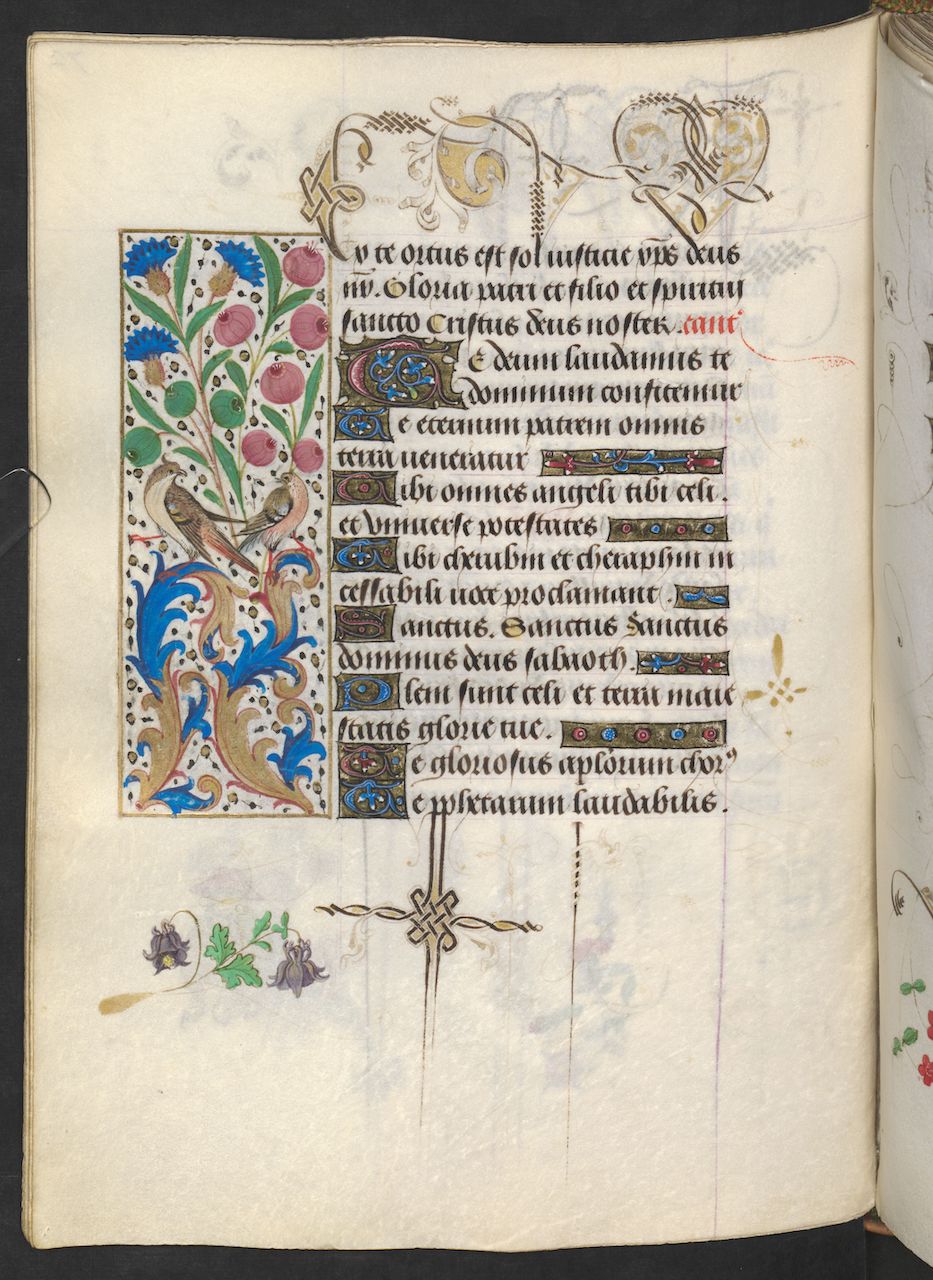 ex te ortus est sol iusticie xp̄s deus
nr̄. Gloria patri et filio et spiritui
sancto Cristus deus noster. cant̾
Te deum laudamus te
dominum confitemur
Te eternum patrem omnis
terra ueneratur
Tibi omnes angeli tibi celi.
et vniuerse potestates
Tibi cherubin et cheraphin in
cessabili uoce proclamant.
Sanctus. Sanctus Sanctus
dominus deus sabaoth.
Pleni sunt celi et terra maie
statis glorie tue.
Te gloriosus apl̄orum chorꝰ
Te prophetarum laudabilis.